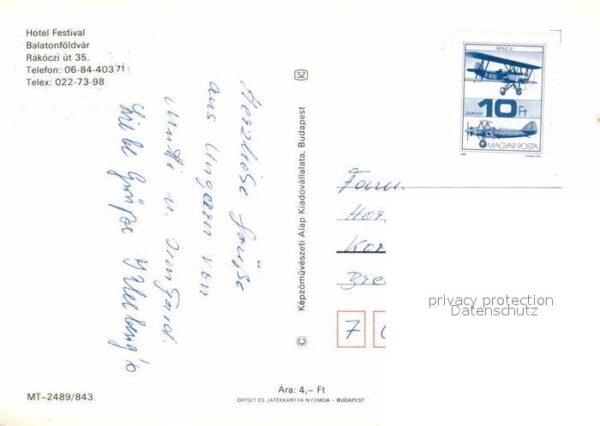 Hotel Festival
Balatonföldvár
Rákóczi út 35.
Telefon: 06-84-40371
Telex: 022-73-98
Herzliche Grüße
aus Ungarn von
Mutti u.
Liebe Grüße
SZ
© Képzőművészeti Alap Kiadóvállalata, Budapest
10 Ft
MAGYAR POSTA
Fam.
Hor
Kor
Bre
7
privacy protection
Datenschutz
MT-2489/843.
Ára: 4,- Ft
OFFSET ÉS JÁTÉKKÁRTYA NYOMDA - BUDAPEST